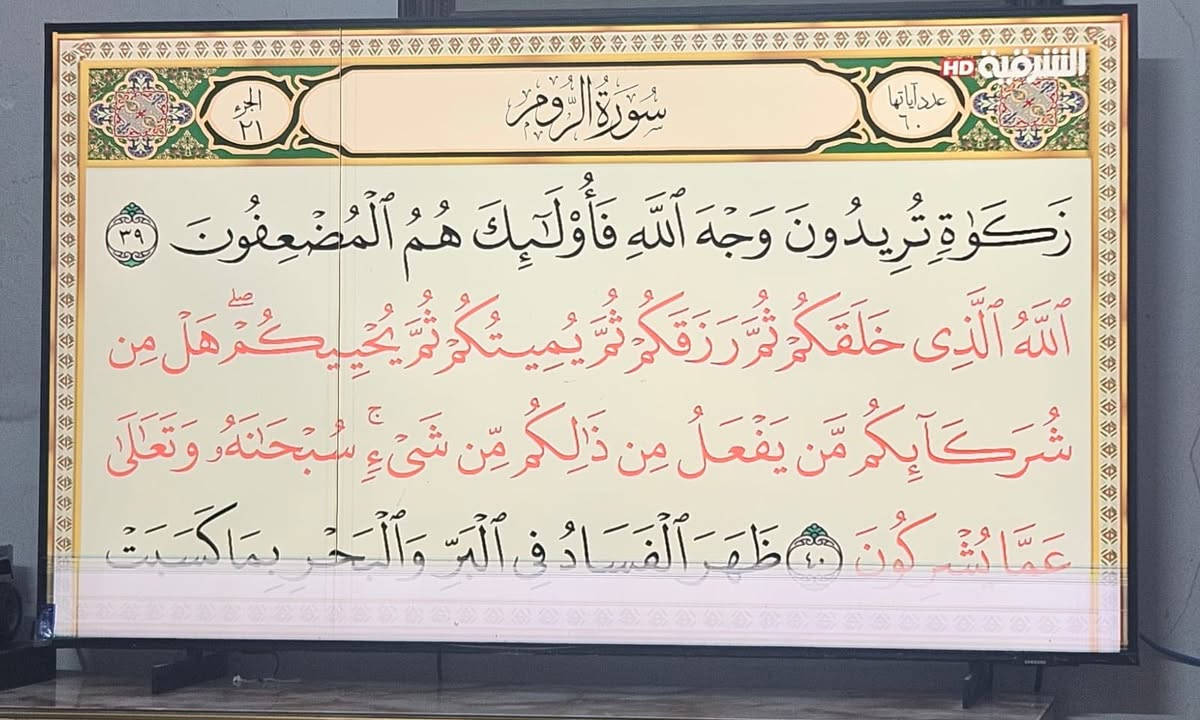 الشرقية HD
عدد آياتها
٦٠
سُورَةُ الرُّومِ
الجزء
٢١
زَكَوٰةٍ تُرِيدُونَ وَجْهَ ٱللَّهِ فَأُو۟لَـٰٓئِكَ هُمُ ٱلْمُضْعِفُونَ ٣٩
ٱللَّهُ ٱلَّذِى خَلَقَكُمْ ثُمَّ رَزَقَكُمْ ثُمَّ يُمِيتُكُمْ ثُمَّ يُحْيِيكُمْ ۖ هَلْ مِن
شُرَكَآئِكُم مَّن يَفْعَلُ مِن ذَٰلِكُم مِّن شَىْءٍ ۚ سُبْحَـٰنَهُۥ وَتَعَـٰلَىٰ
عَمَّا يُشْرِكُونَ ٤٠ ظَهَرَ ٱلْفَسَادُ فِى ٱلْبَرِّ وَٱلْبَحْرِ بِمَا كَسَبَتْ
SAMSUNG